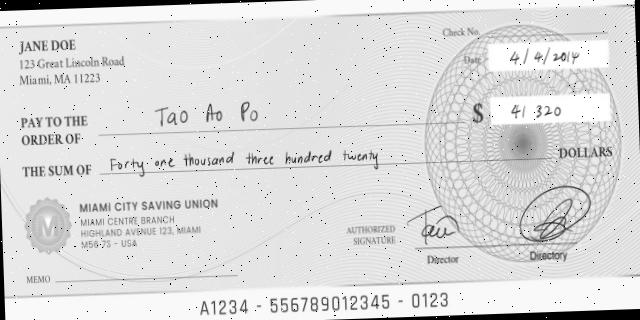 JANE DOE
123 Great Lincoln Road
Miami, MA 11223
Check No.
Date 4/4/2014
PAY TO THE
ORDER OF Tao Ao Po
$ 41 320
THE SUM OF Forty one thousand three hundred twenty DOLLARS
MIAMI CITY SAVING UNION
MIAMI CENTRE BRANCH
HIGHLAND AVENUE 123, MIAMI
M56 7S - USA
AUTHORIZED
SIGNATURE
Director
Directory
MEMO
A1234 - 556789012345 - 0123